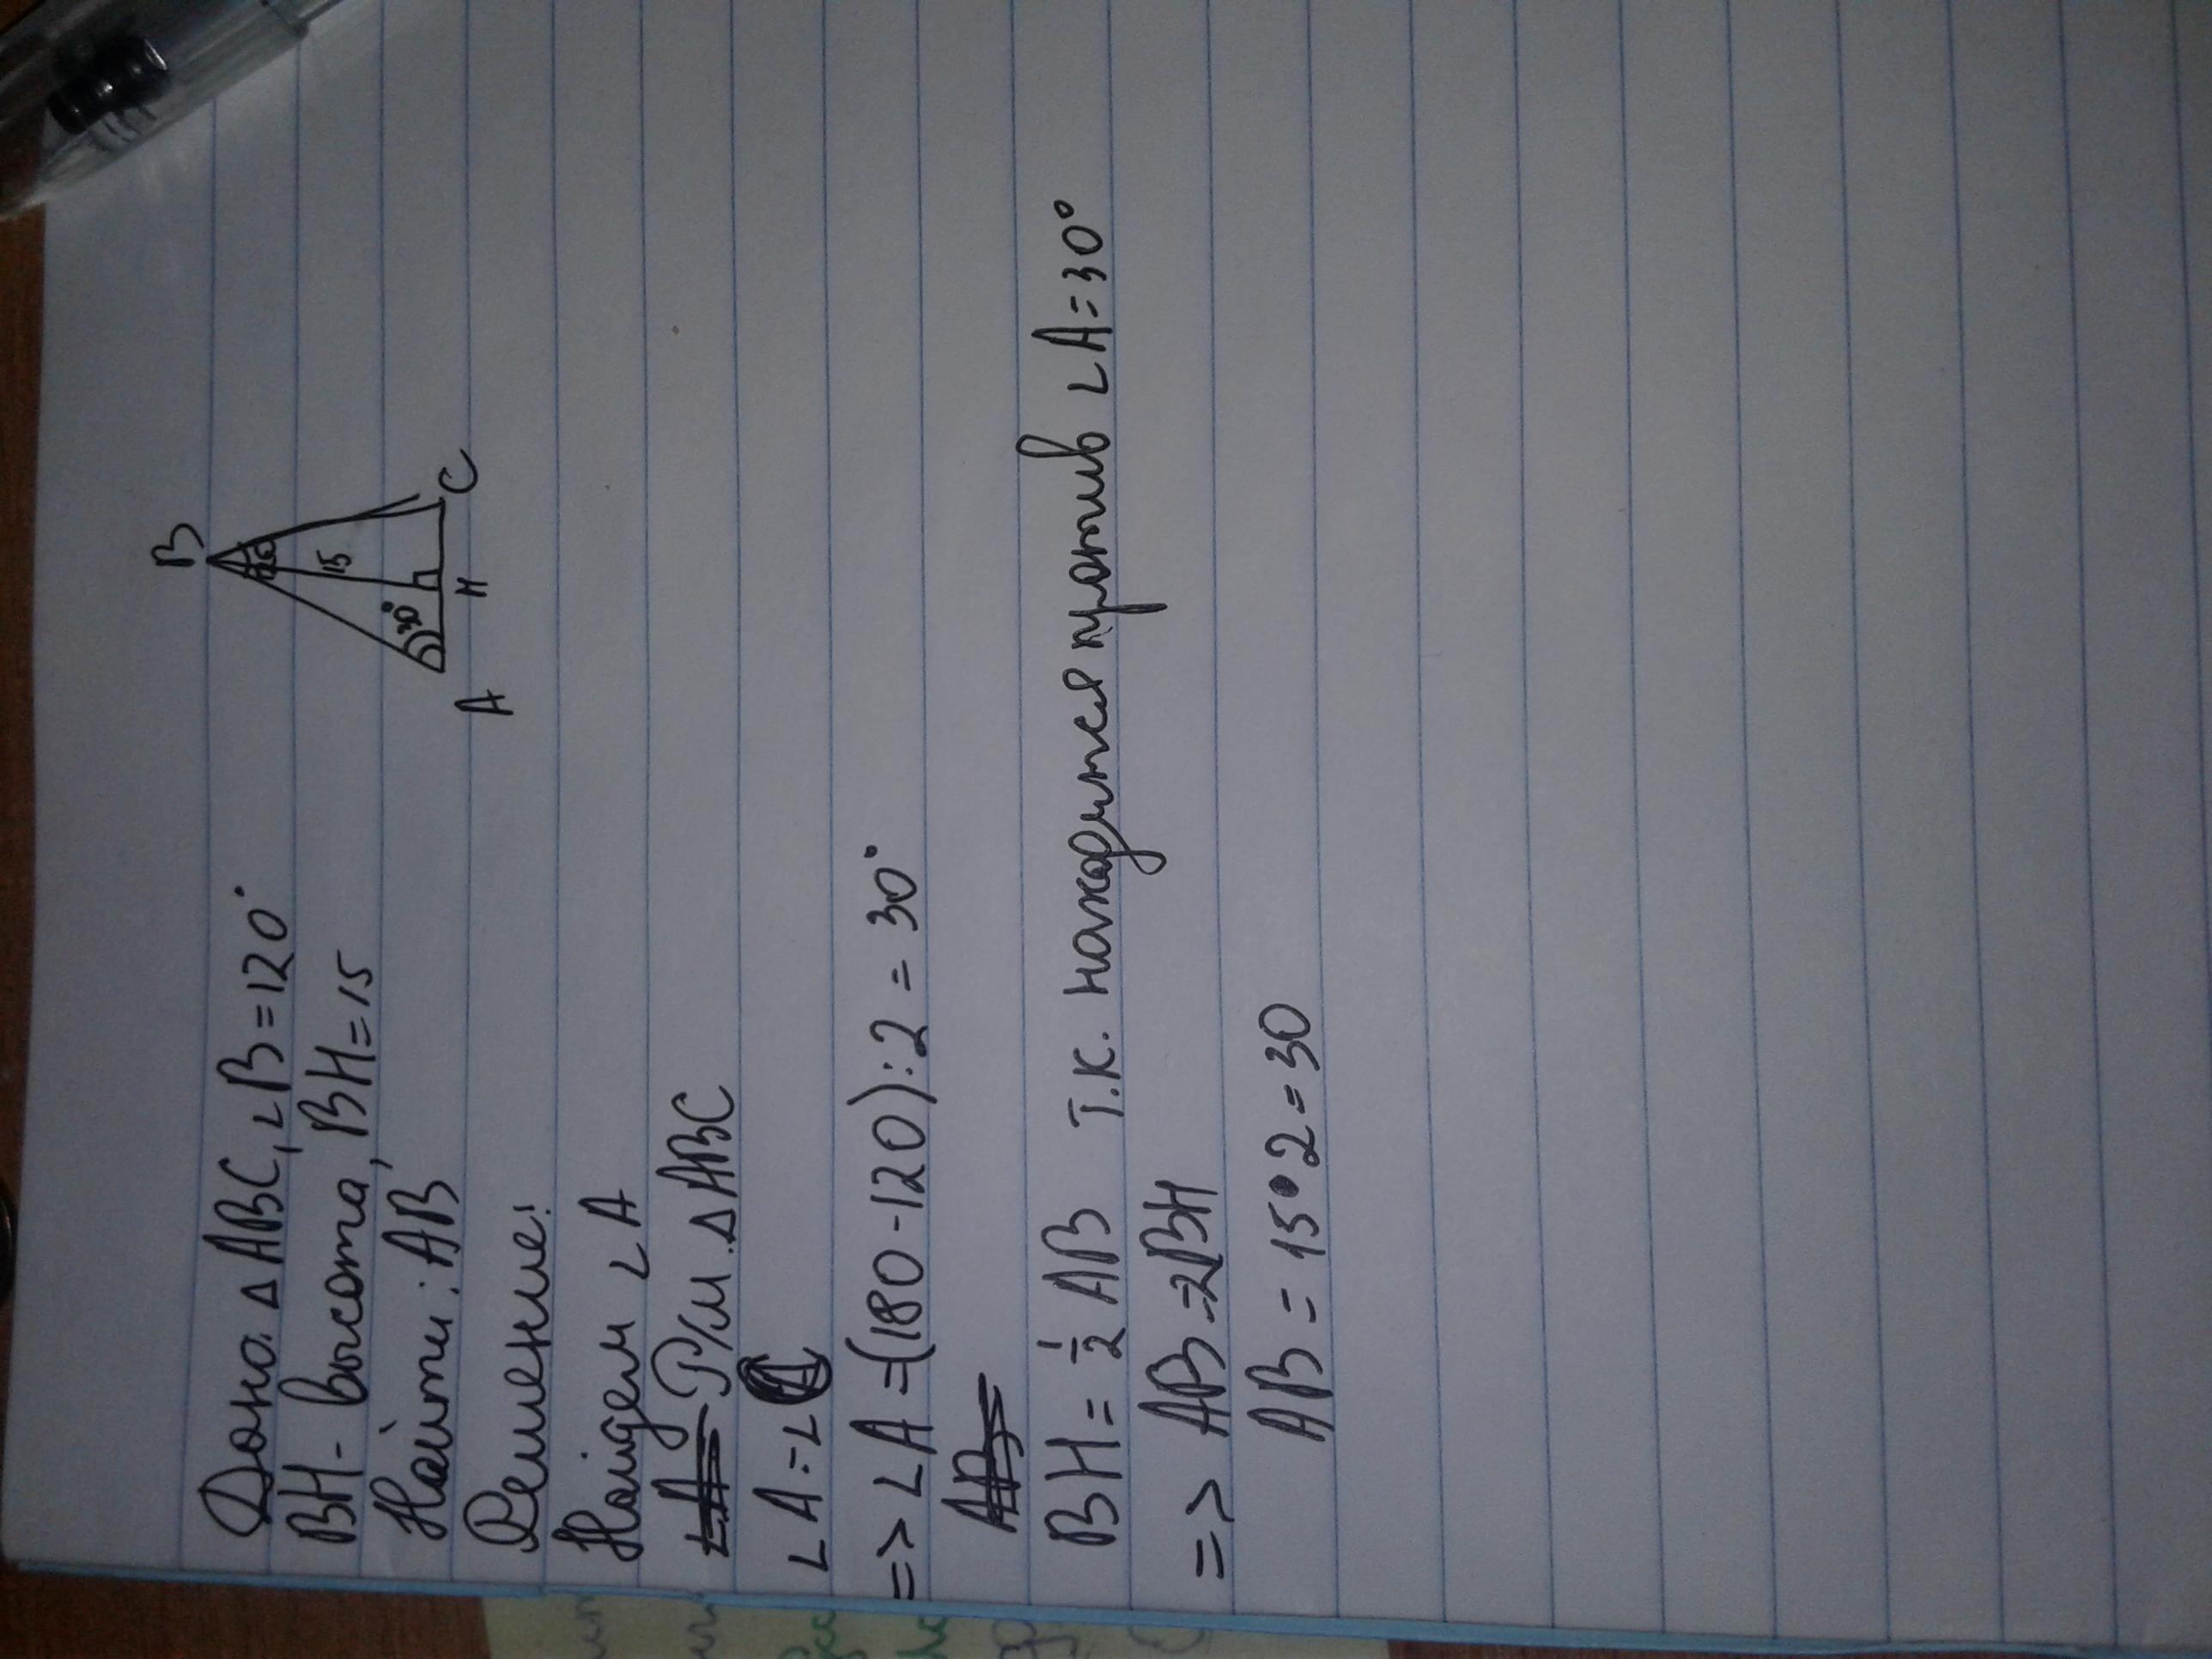 Дано: ΔABC, ∠B=120°
BH- высота, BH=15
Найти: AB
Решение:
Найдем ∠A
Р/м. ΔABC
∠A=∠
=> ∠A=(180-120):2=30°
BH=½ AB т.к. находится против ∠A=30°
=> AB=2BH
AB=15•2=30
B
15
30°
A
H
C